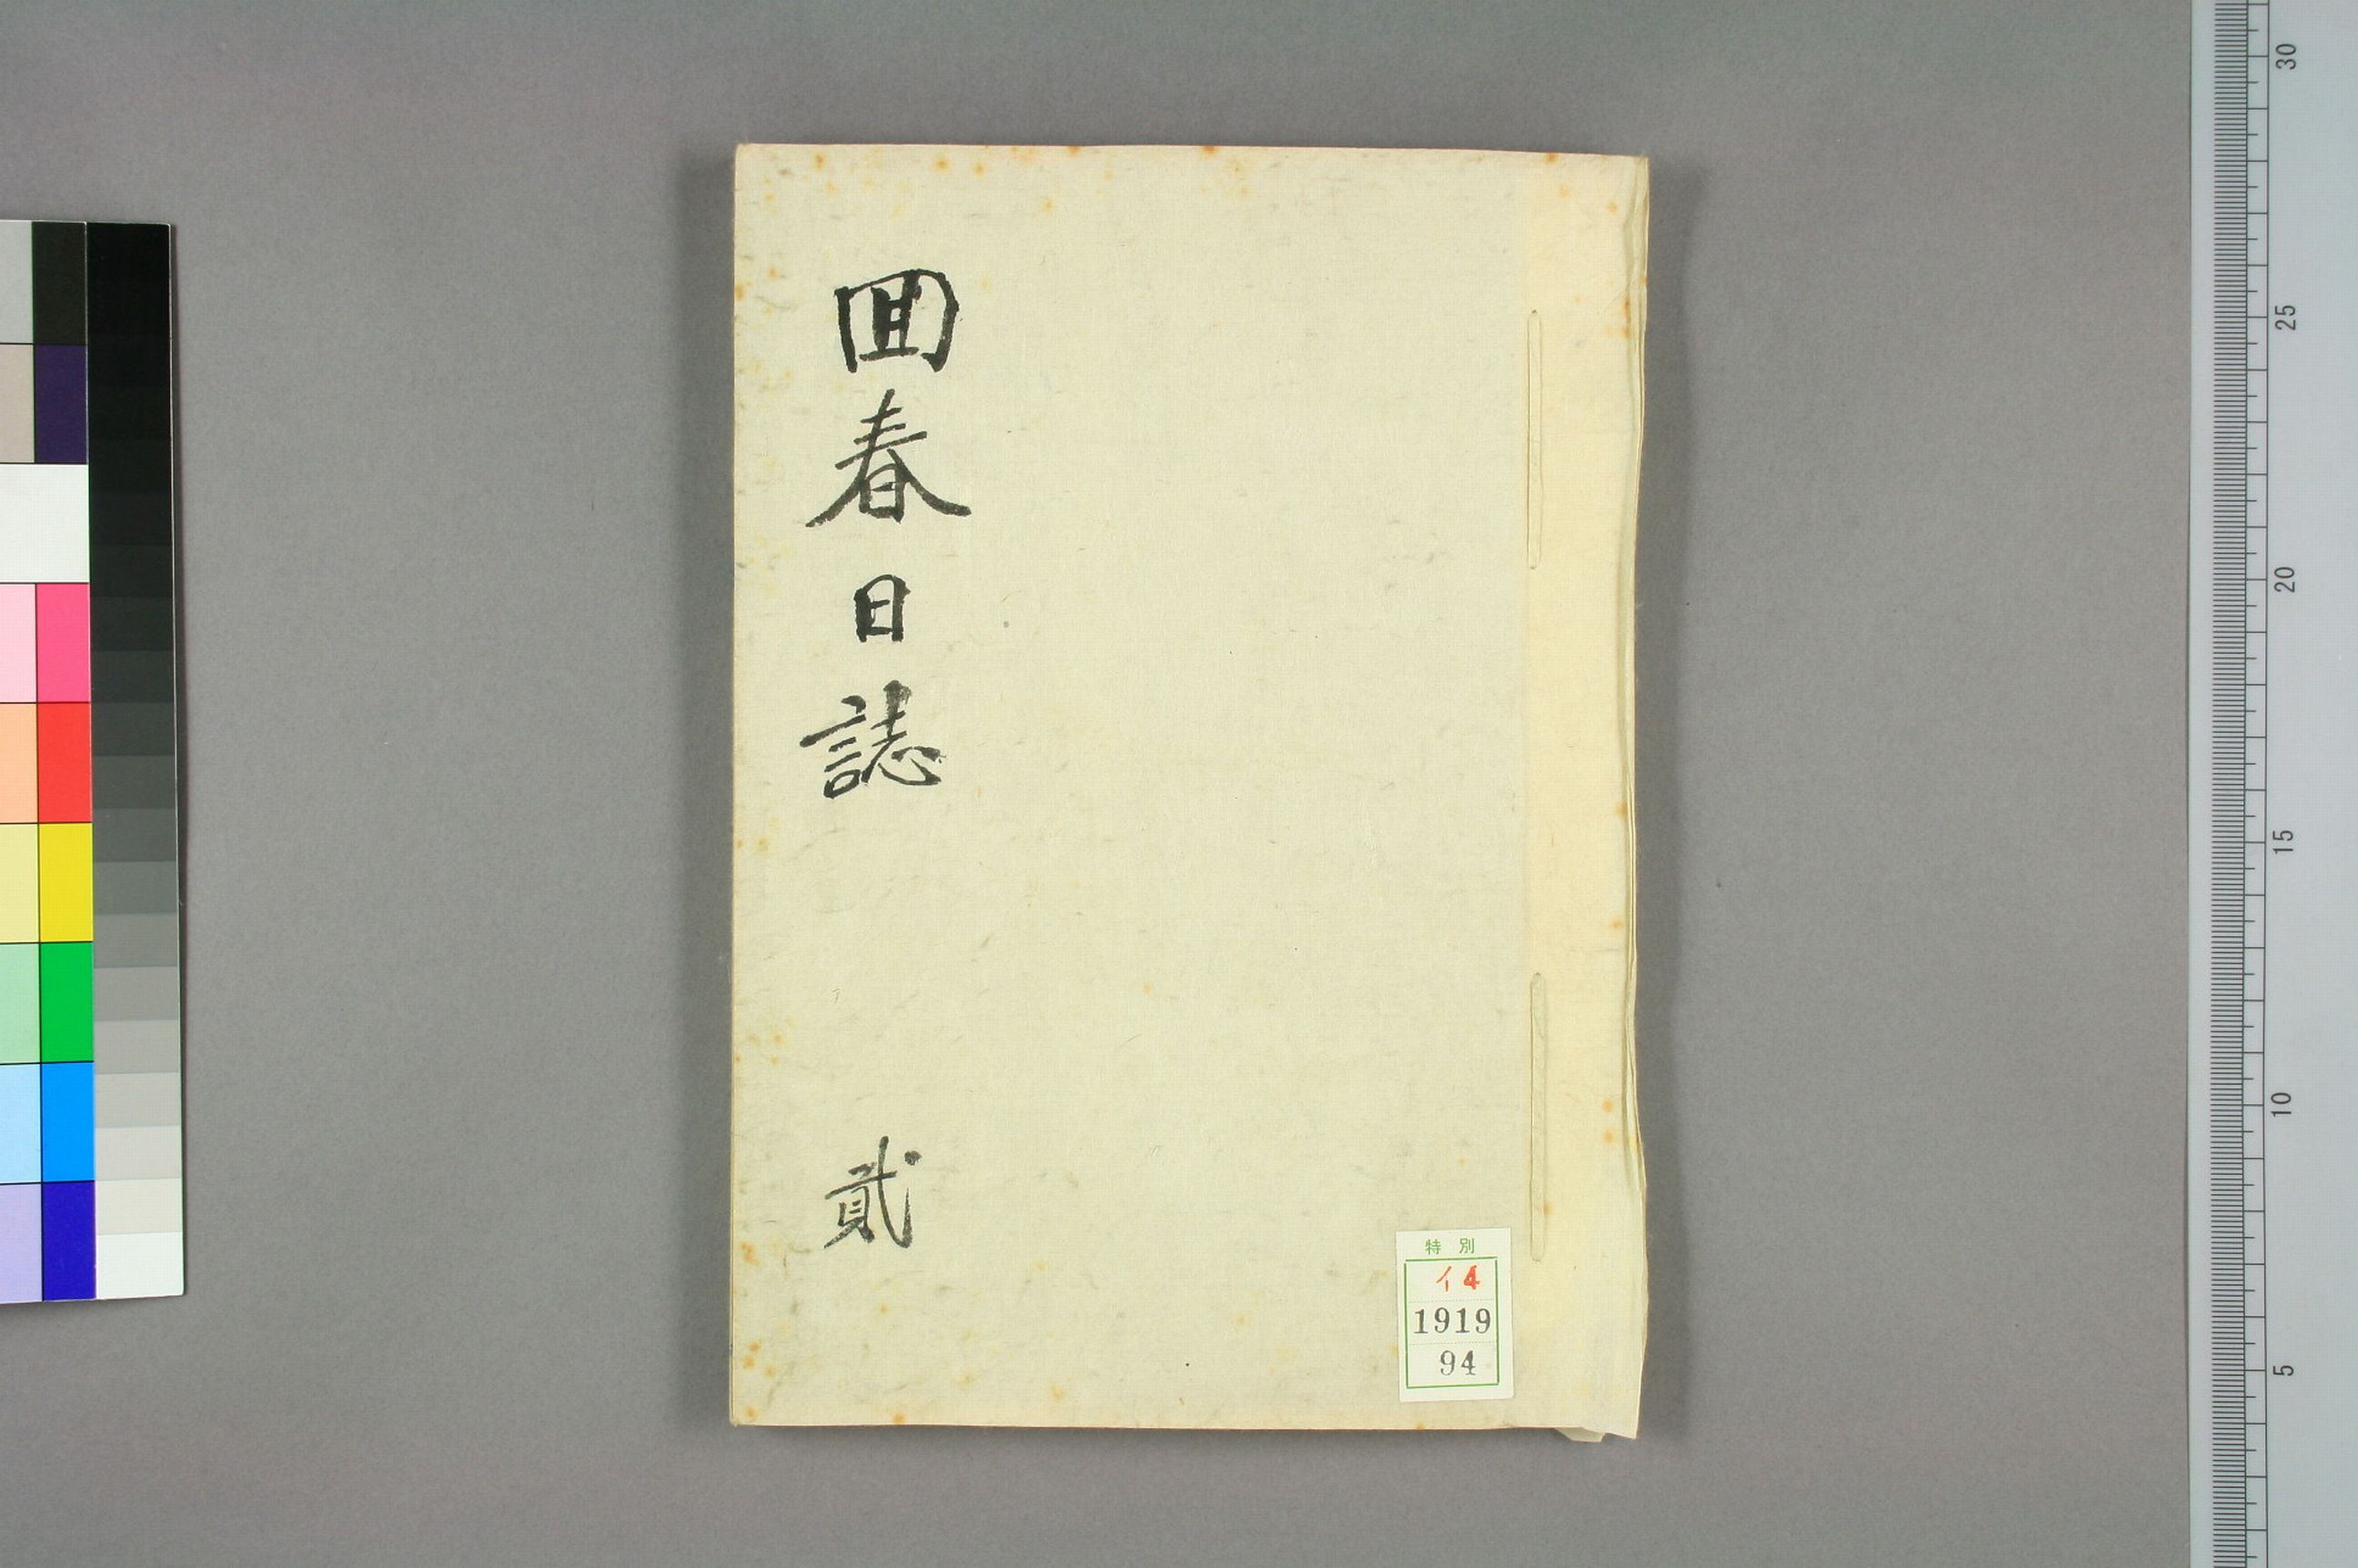 囬春日誌 貳
特別
イ4
1919
94
30
25
20
15
10
5